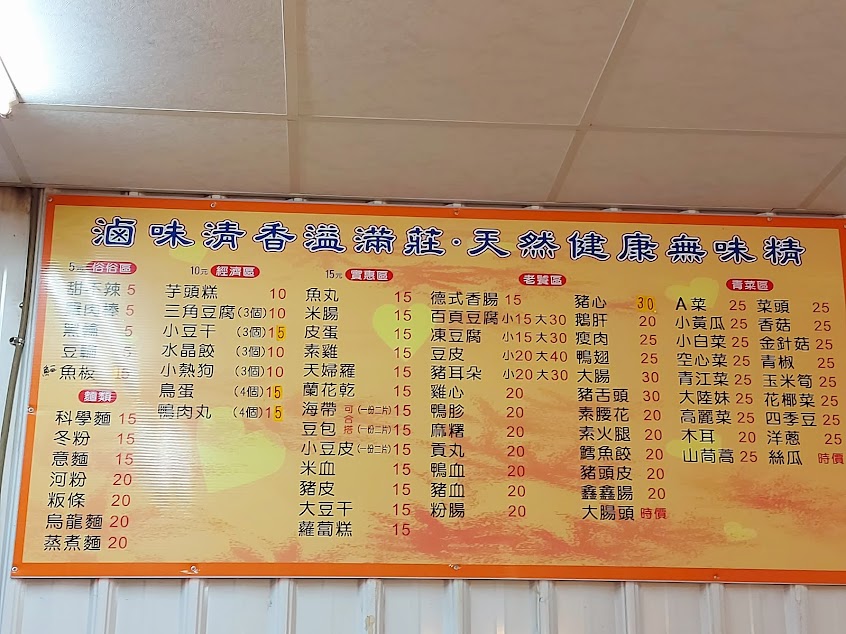 滷味清香溢滿莊·天然健康無味精
5元 俗俗區
甜不辣 5
5
黑輪 5
豆輪 5
魚板 15
麵類
科學麵 15
冬粉 15
意麵 15
河粉 20
粄條 20
烏龍麵 20
蒸煮麵 20
10元 經濟區
芋頭糕 10
三角豆腐(3個)10
小豆干(3個)15
水晶餃(3個)10
小熱狗(3個)10
鳥蛋(4個)15
鴨肉丸(4個)15
15元 實惠區
魚丸 15
米腸 15
皮蛋 15
素雞 15
天婦羅 15
蘭花乾 15
海帶(一份二片)15
豆包(一份二片)15
小豆皮(一份二片)15
可合搭
米血 15
豬皮 15
大豆干 15
蘿蔔糕 15
老饕區
德式香腸 15
百頁豆腐 小15大30
凍豆腐 小15大30
豆皮 小20大40
豬耳朵 小20大30
雞心 20
鴨胗 20
麻糬 20
貢丸 20
鴨血 20
豬血 20
粉腸 20
豬心 30
鵝肝 20
瘦肉 25
鴨翅 25
大腸 30
豬舌頭 30
素腰花 20
素火腿 20
鱈魚餃 20
豬頭皮 20
鑫鑫腸 20
大腸頭 時價
青菜區
A菜 25
小黃瓜 25
小白菜 25
空心菜 25
青江菜 25
大陸妹 25
高麗菜 25
木耳 20
山茼蒿 25
菜頭 25
香菇 25
金針菇 25
青椒 25
玉米筍 25
花椰菜 25
四季豆 25
洋蔥 25
絲瓜 時價